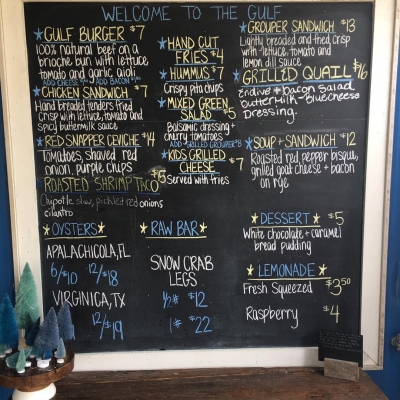 WELCOME TO THE GULF
GULF BURGER $7
100% natural beef on a
brioche bun with lettuce
tomato and garlic aioli
ADD CHEESE ADD BACON
CHICKEN SANDWICH $7
Hand breaded tenders fried
Crisp with lettuce, tomato and
Spicy buttermilk sauce
RED SNAPPER CEVICHE $14
Tomatoes, shaved red
onion, purple chips
ROASTED SHRIMP TACO $6
Chipotle slaw, pickled red onions
cilantro
HAND CUT
FRIES $4
HUMMUS $7
Crispy pita chips
MIXED GREEN
SALAD $5
Balsamic dressing +
cherry tomatoes
ADD GRILLED GROUPER $8
KIDS GRILLED
CHEESE $7
Served with fries
GROUPER SANDWICH $13
Lightly breaded and fried crisp
with lettuce, tomato and
lemon dill sauce
GRILLED QUAIL $16
Endive + bacon salad
buttermilk-bluecheese
Dressing.
SOUP + SANDWICH $12
Roasted red pepper bisque,
grilled goat cheese + bacon
on rye
OYSTERS
APALACHICOLA, FL
6/$10 12/$18
VIRGINICA, TX
12/$19
RAW BAR
SNOW CRAB
LEGS
1/2# $12
1# $22
DESSERT $5
White chocolate + caramel
bread pudding
LEMONADE
Fresh Squeezed $3.50
Raspberry $4